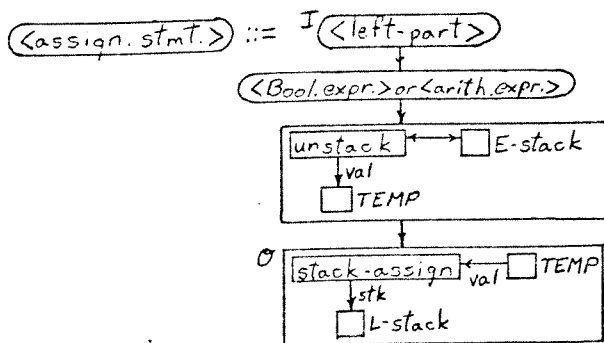 <assign. stmt.> ::= I <left-part>
<Bool.expr.> or <arith.expr.>
unstack E-stack
val
TEMP
O stack-assign val TEMP
stk
L-stack